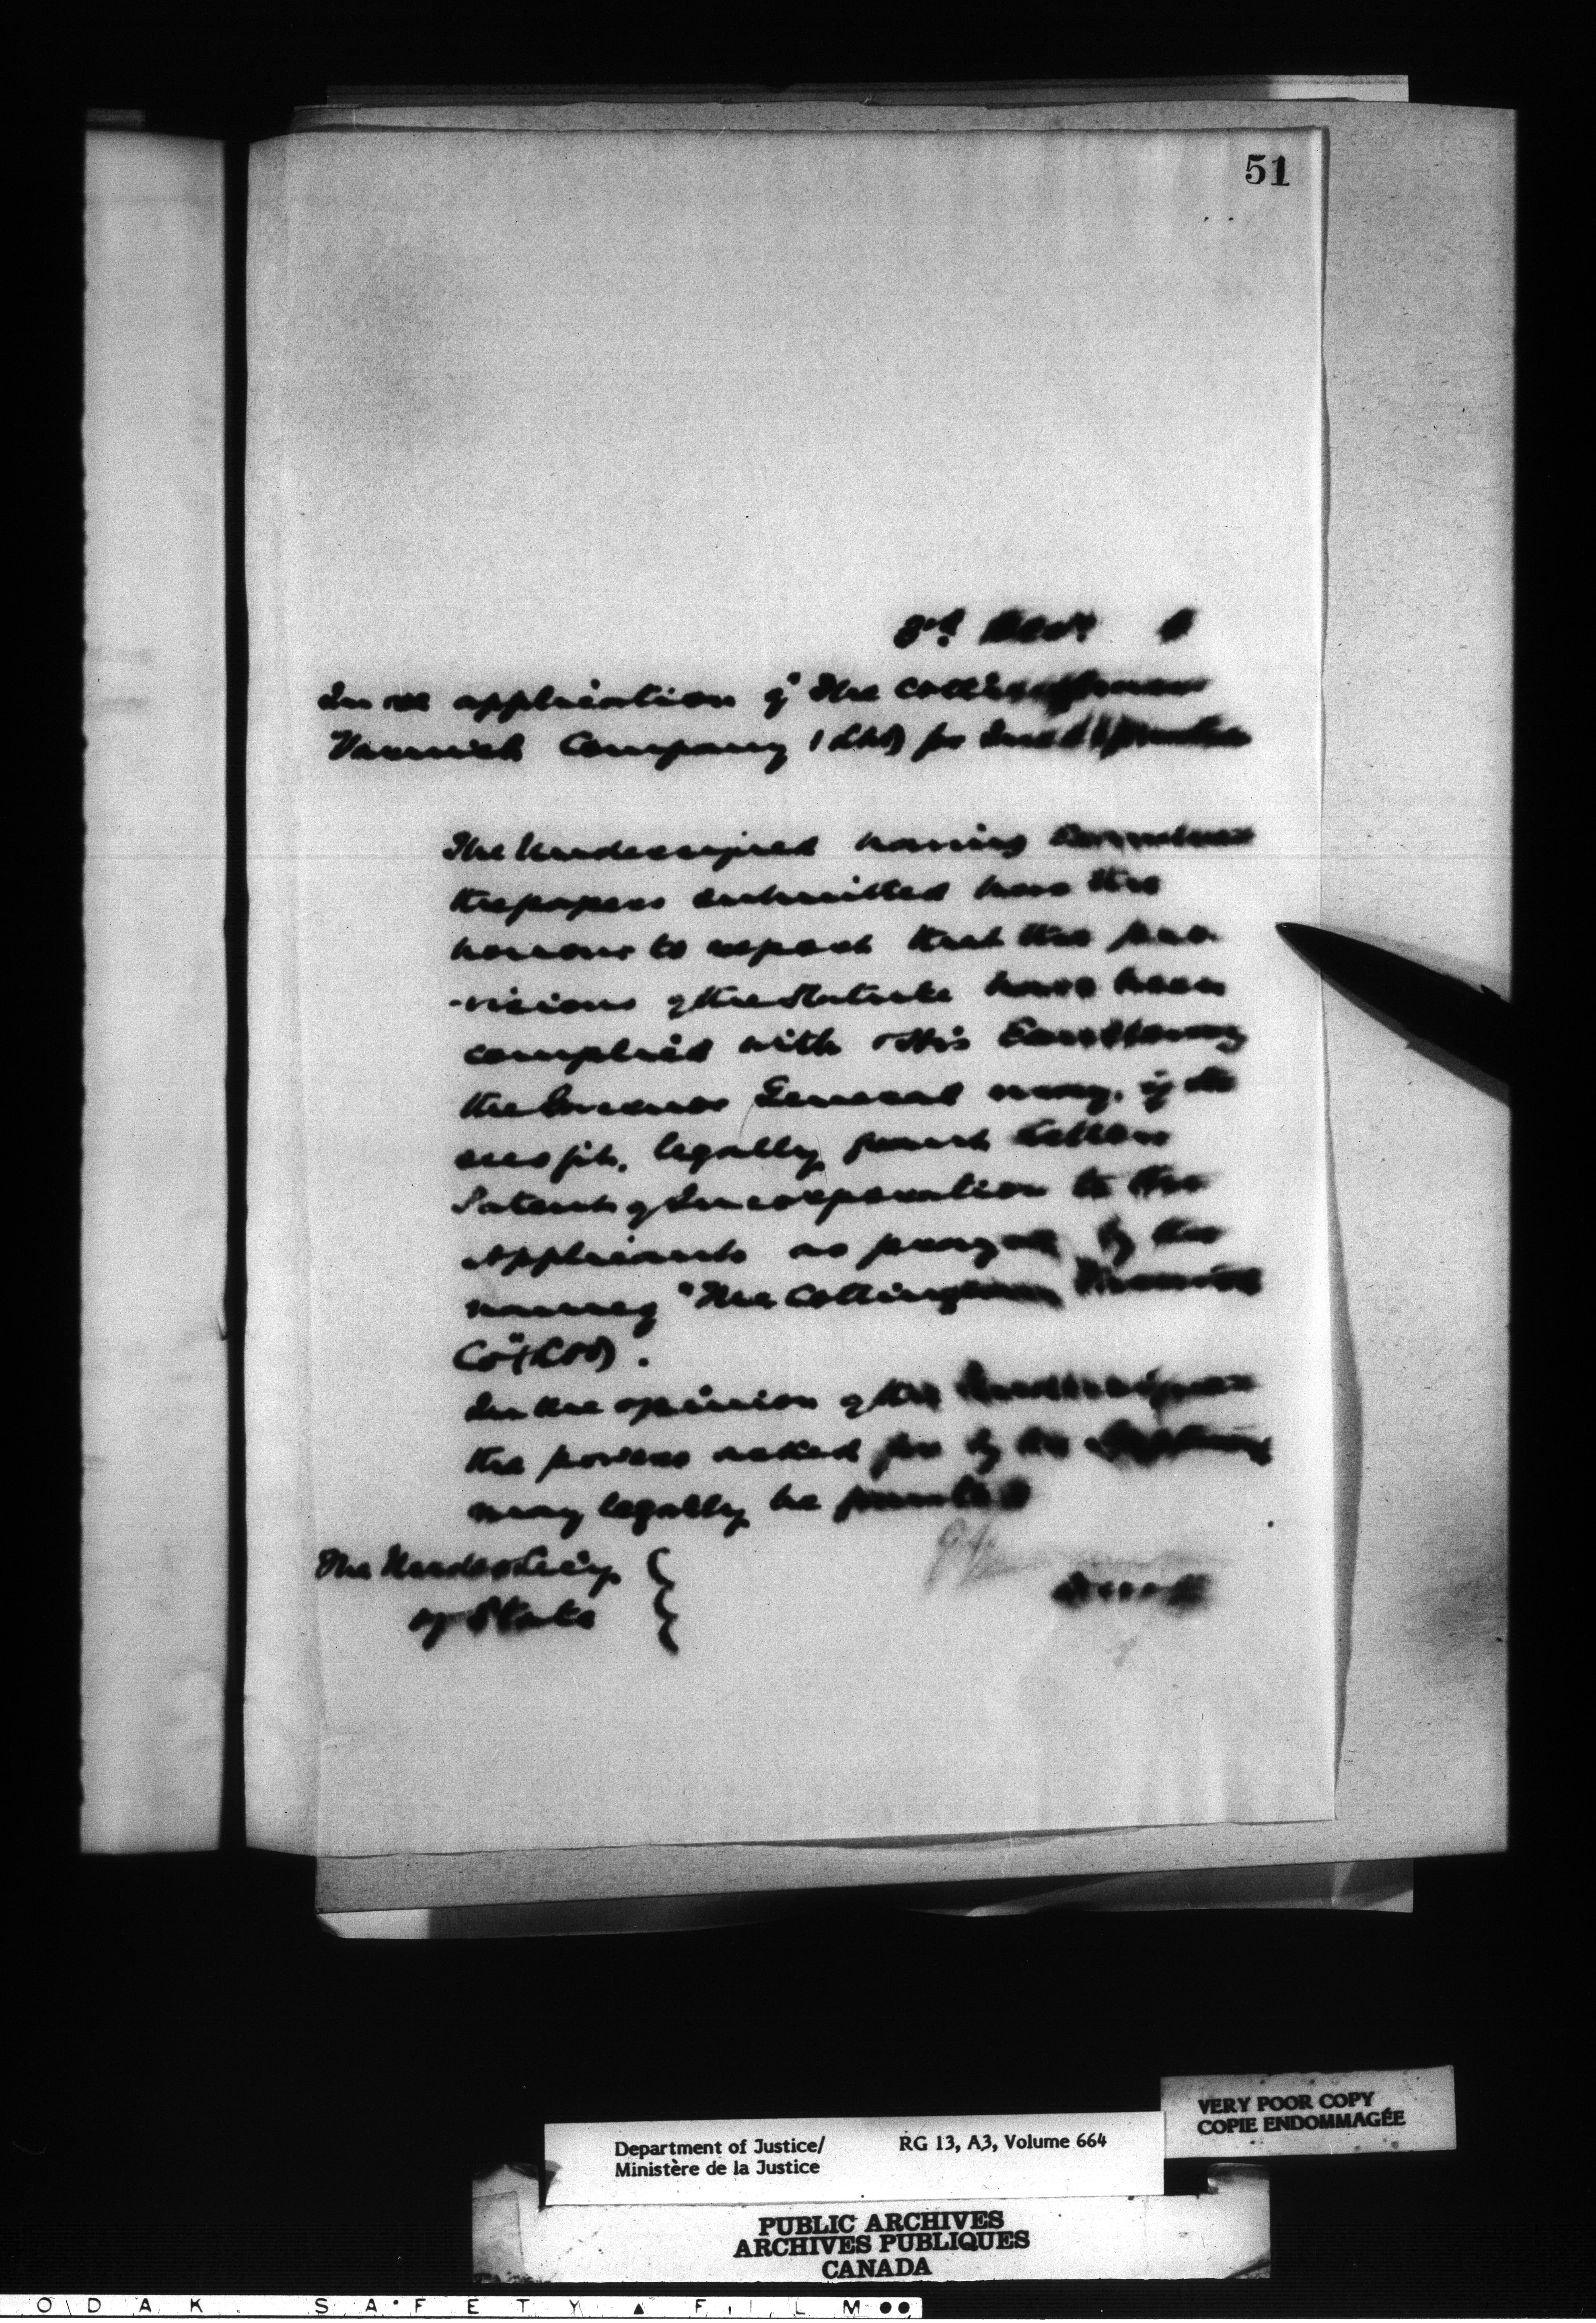 51
3rd
In re application of The
Varnish Company (Ltd) for
The Undersigned having Examined
the papers submitted has the
honour to report that the pro-
-visions of the Statute have been
complied with & His Excellency
the Governor General may, if He
sees fit, legally grant Letters
Patent of Incorporation to the
Applicants as prayed by the
name of "The Collingwood Varnish
Co" (Ltd).
In the opinion of the Undersigned
the powers asked for by the
may legally be granted
The Under Sec'y
of State
VERY POOR COPY
COPIE ENDOMMAGÉE
Department of Justice/ RG 13, A3, Volume 664
Ministère de la Justice
PUBLIC ARCHIVES
ARCHIVES PUBLIQUES
CANADA
ODAK SAFETY ▲ FILM ●●